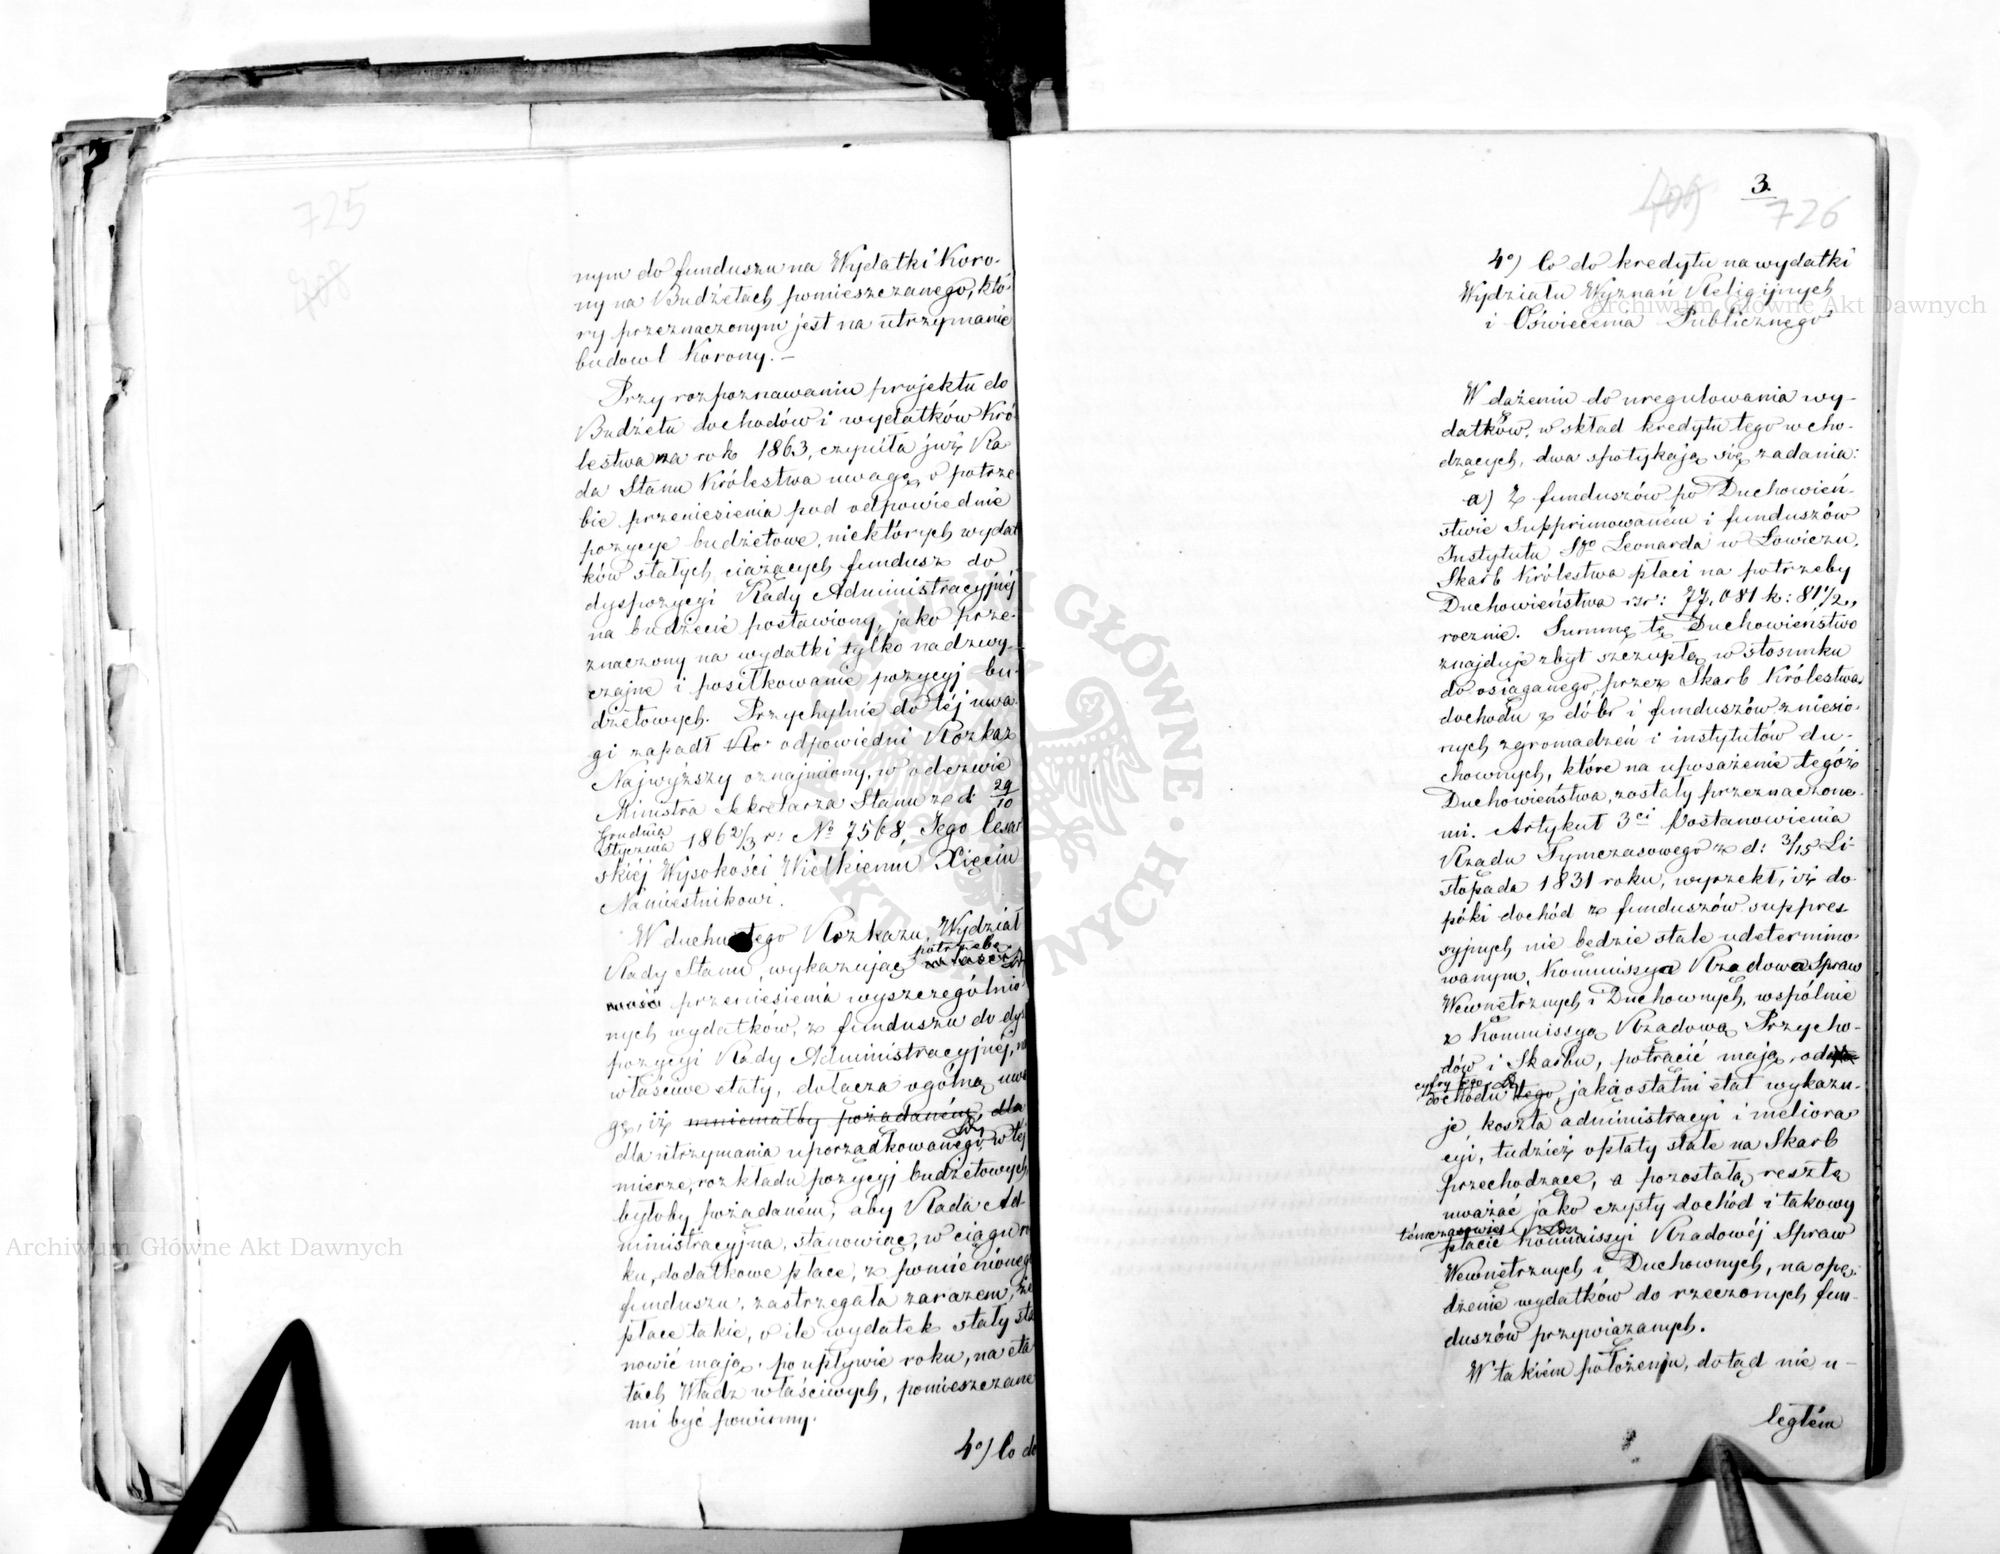 725
408
nym do funduszu na Wydatki Koro-
ny na Budżetach pomieszczanego, któ-
ry przeznaczonym jest na utrzymanie
budowl Korony. –
Przy rozpoznawaniu projektu do
Budżetu dochodów i wydatków Kró-
lestwa na rok 1863, czyniła już Ra-
da Stanu Królestwa uwagę, o potrze
bie przeniesienia pod odpowiednie
pozycye budżetowe, niektórych wydat
ków stałych, ciążących fundusz do
dyspozycyi Rady Administracyjnéj
na budżecie postawiony, jako prze-
znaczony na wydatki tylko nadzwy-
czajne i posiłkowanie pozycyj bu-
dżetowych. Przychylnie do téj uwa-
gi zapadł odpowiedni Rozkaz
Najwyższy oznajmiony, w odezwie
Ministra Sekretarza Stanu z d: 29/10
Grudnia
Stycznia 1862/3 r: № 7568, Jego Cesar
skiéj Wysokości Wielkiemu Xięciu
Namiestnikowi.
W duchu tego Rozkazu, Wydział
potrzebę
Rady Stanu, wykazując
przeniesienia wyszczególnio-
nych wydatków, z funduszu do dys
pozycyi Rady Administracyjnéj, na
właściwe etaty, dołącza ogólną uwa
gę, iż mniemałby pożądaném, dla
dla utrzymania uporządkowanego, w téj
mierze, rozkładu pozycyj budżetowych
byłoby pożądaném, aby Rada Ad-
ministracyjna, stanowiąc, w ciągu ro
ku, dodatkowe płace, z pomienionego
funduszu, zastrzegała zarazem, że
płace takie, o ile wydatek stały sta
nowić mają, po upływie roku, na eta
tach Władz właściwych, pomieszczane
mi być powinny.
4o) Co do
3.
409
726
4o) Co do kredytu na wydatki
Wydziału Wyznań Religijnych
i Oświecenia Publicznego
W dążeniu do uregulowania wy-
datków, w skład kredytu tego wcho-
dzących, dwa spotykają się zadania:
a) Z funduszów po Duchowień-
stwie Supprimowaném i funduszów
Instytutu Sgo Leonarda w Łowiczu,
Skarb Królestwa płaci na potrzeby
Duchowieństwa rsr: 77,081 k: 81 1/2,
rocznie. Summę tę Duchowieństwo
znajduje zbyt szczupłą, w stosunku
do osiąganego, przez Skarb Królestwa
dochodu z dóbr i funduszów zniesio-
nych zgromadzeń i instytutów du-
chownych, które na uposażenie tegóż
Duchowieństwa, zostały przeznaczone-
mi. Artykuł 3ci Postanowienia
Rządu Tymczasowego z d: 3/15 Li-
stopada 1831 roku, wyrzekł, iż do-
póki dochód z funduszów suppres
syjnych nie będzie stale udetermino-
wanym, Kommissya Rządowa Spraw
Wewnętrznych i Duchownych, wspólnie
z Kommissyą Rządową Przycho-
dów i Skarbu, potrącić mają, od
cyfry tego
dochodu tego, jaką ostatni etat wykazu-
je koszta administracyi i meliora-
cyi, tudzież opłaty stałe na Skarb
przechodzące, a pozostałą resztę
uważać jako czysty dochód i takowy
témczasowie
płacić Kommissyi Rządowéj Spraw
Wewnętrznych i Duchownych, na opę-
dzenie wydatków do rzeczonych fun-
duszów przywiązanych.
W takiém położeniu, dotąd nie u-
ległém
Archiwum Główne Akt Dawnych
Archiwum Główne Akt Dawnych
ARCHIWUM GŁÓWNE AKT DAWNYCH